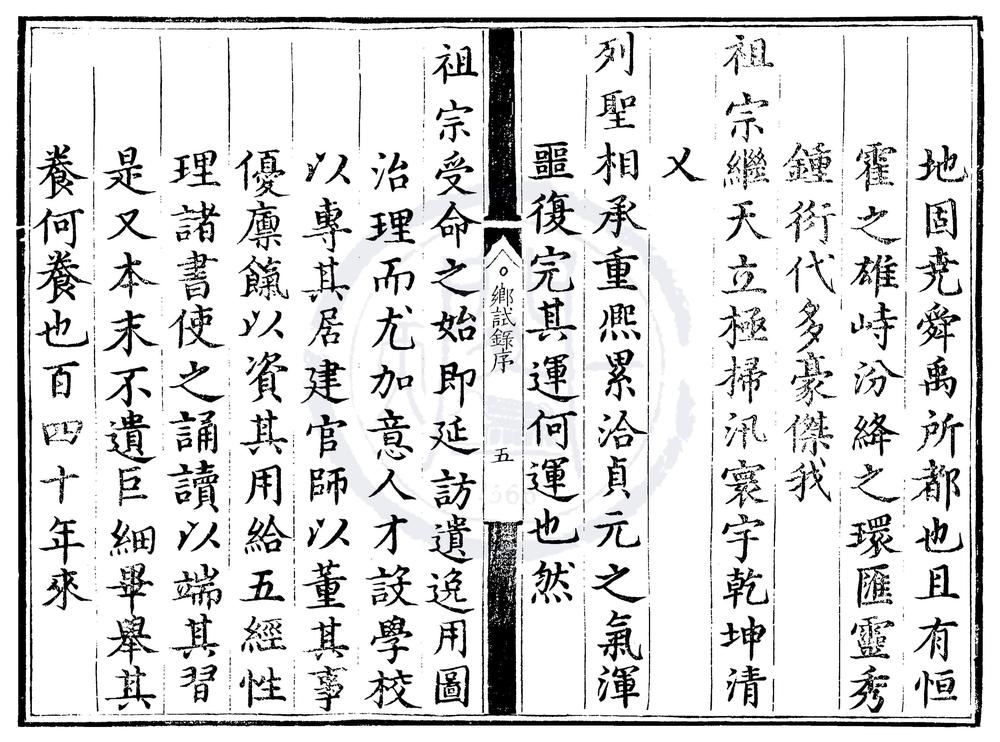 地固堯舜禹所都也且有恒
霍之雄峙汾絳之環匯靈秀
鍾衍代多豪傑我
祖宗繼天立極掃汛寰宇乾坤清
乂
列聖相承重熈累洽貞元之氣渾
噩復完其運何運也然
鄉試錄序
五
祖宗受命之始即延訪遺逸用圖
治理而尤加意人才設學校
以專其居建官師以董其事
優廪餼以資其用給五經性
理諸書使之誦讀以端其習
是又本末不遺巨細畢舉其
養何養也百四十年來